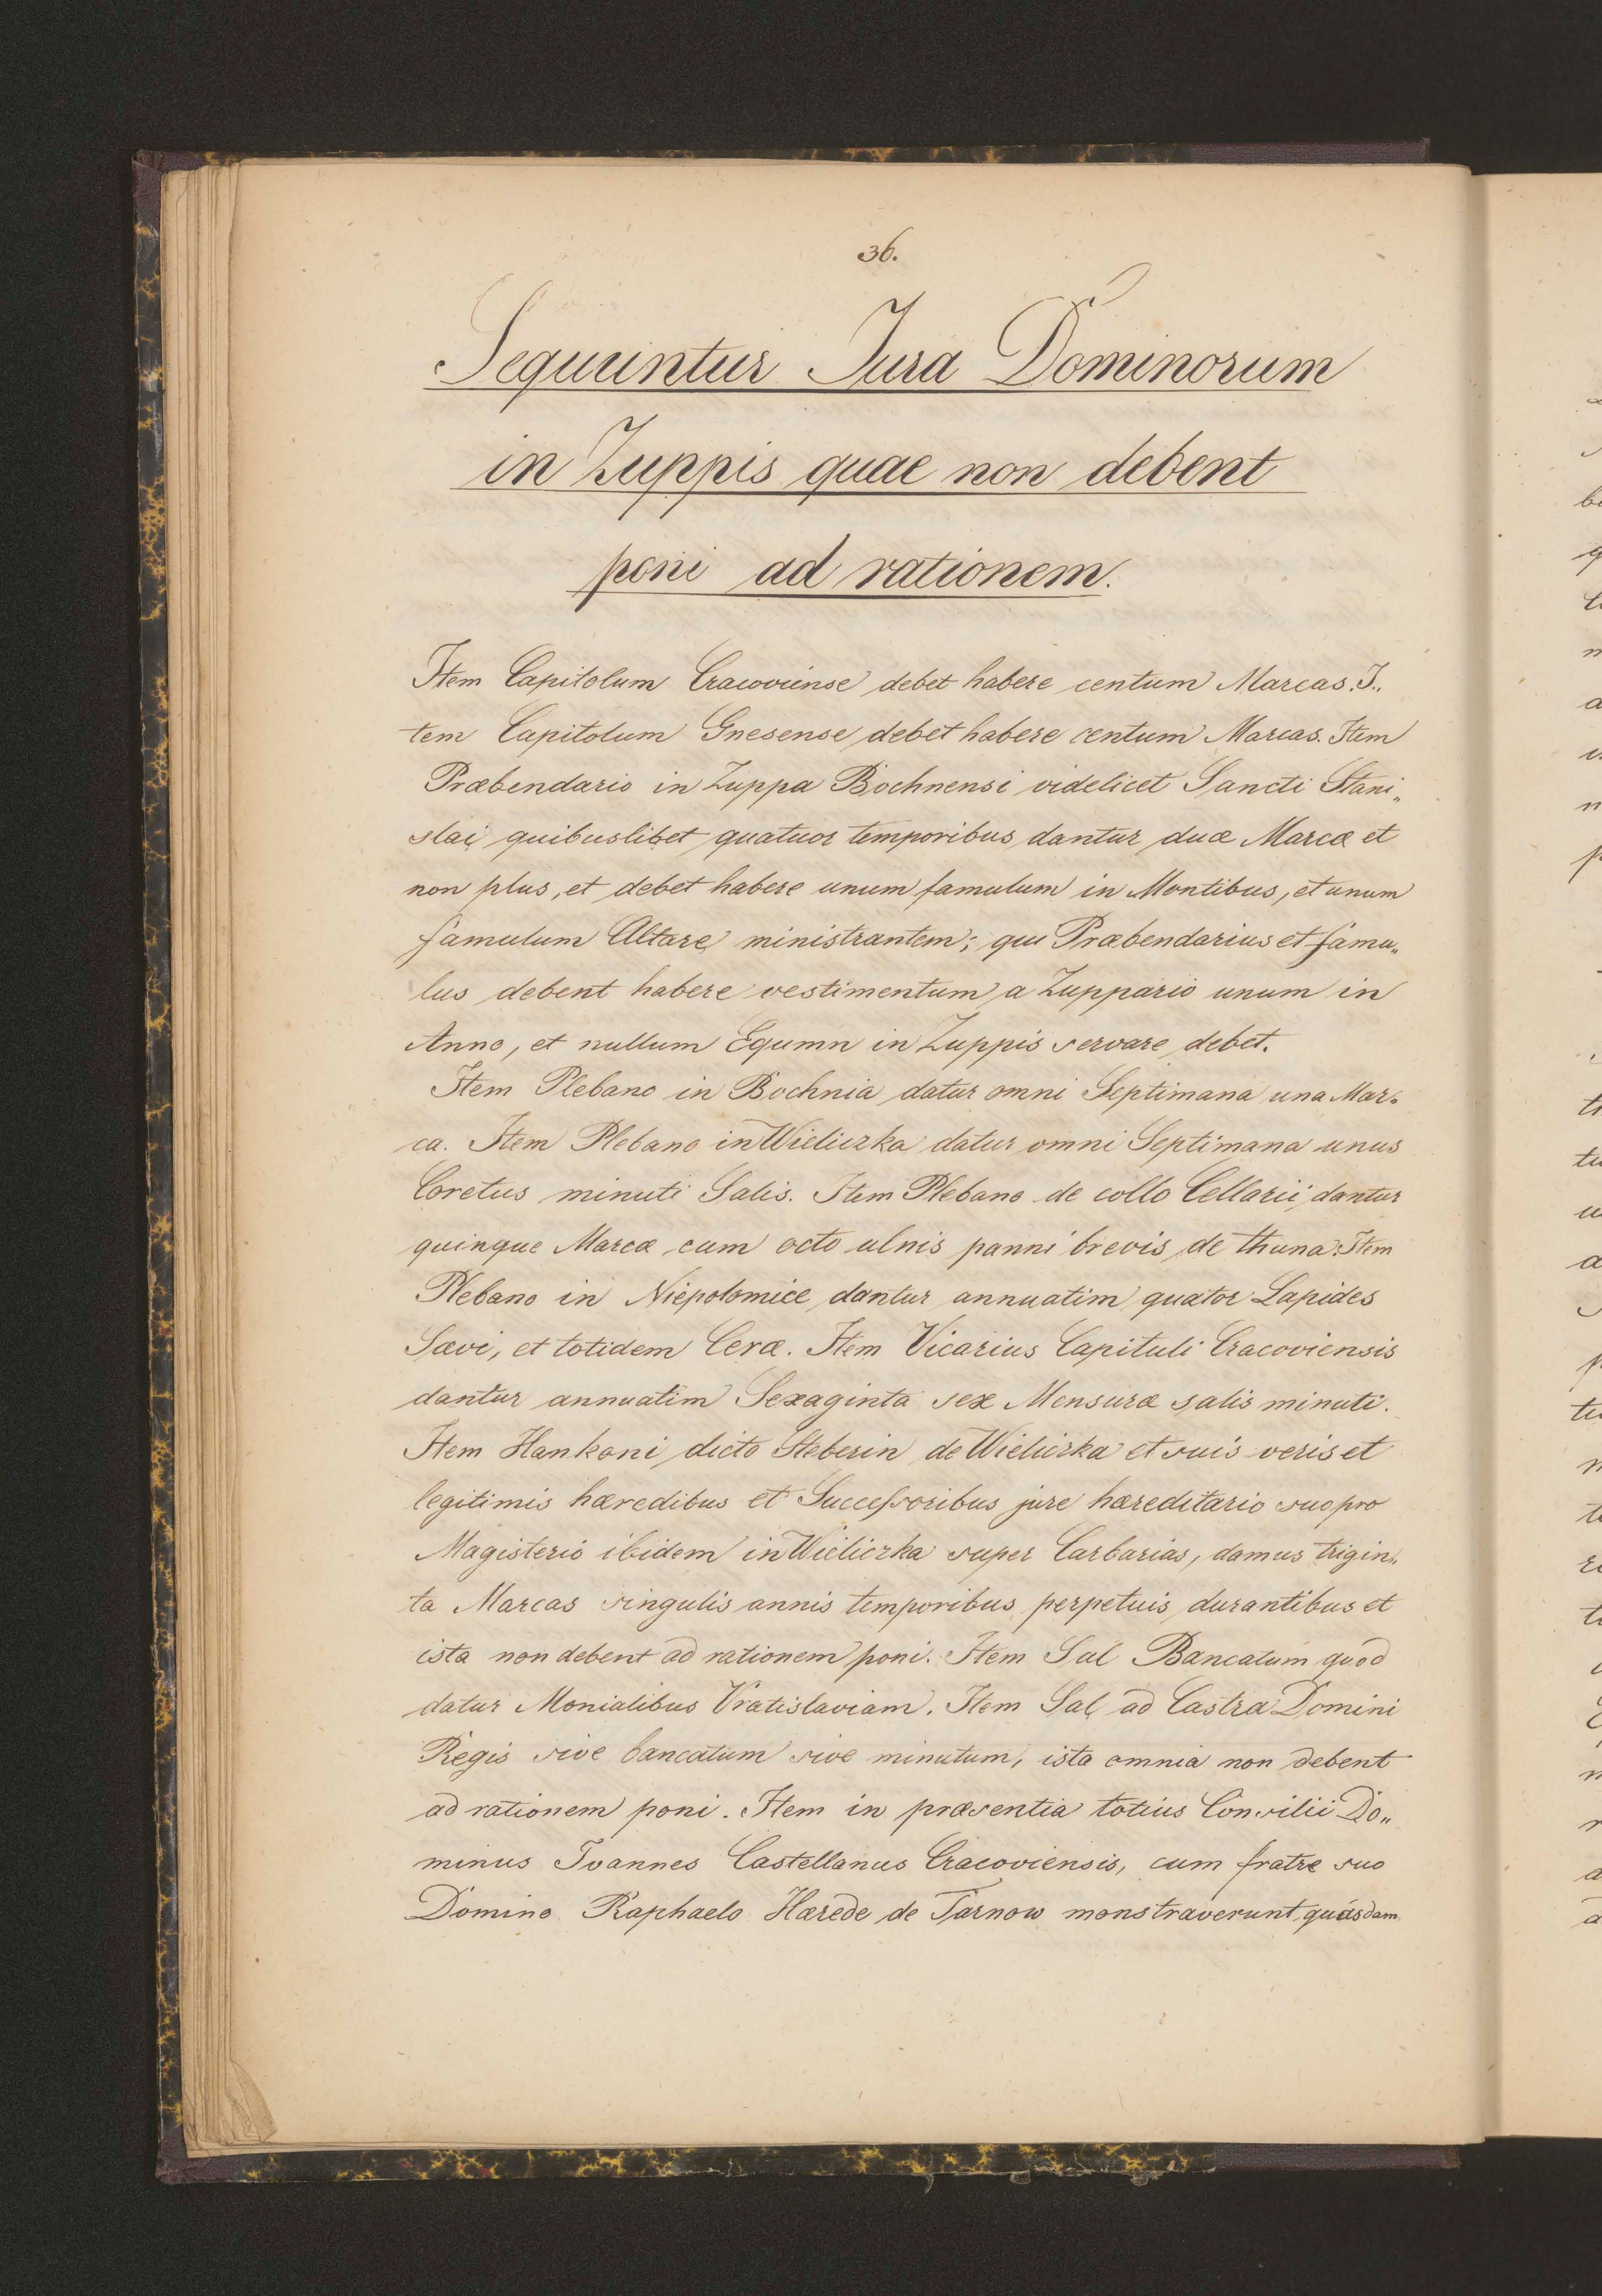 36.
Sequuntur Jura Dominorum
in Zuppis quae non debent
poni ad rationem.
Item Capitolum Cracoviense debet habere centum Marcas. I„
tem Capitolum Gnesense debet habere centum Marcas. Item
Præbendario in Zuppa Bochnensi videlicet Sancti Stani„
slai quibuslibet quatuor temporibus dantur duæ Marcæ et
non plus, et debet habere unum famulum in Montibus, et unum
famulum Altare ministrantem; qui Præbendarius et famu„
lus debent habere vestimentum a Zuppario unum in
Anno, et nullum Equmn in Zuppis servare debet.
Item Plebano in Bochnia datur omni Septimana una Mar„
ca. Item Plebano in Wieliczka datur omni Septimana unus
Coretus minuti Salis. Item Plebano de collo Cellarii dantur
quinque Marcæ cum octo ulnis panni brevis de thuna. Item
Plebano in Niepolomice dantur annuatim quator Lapides
Sævi, et totidem Ceræ. Item Vicarius Capituli Cracoviensis
dantur annuatim Sexaginta sex Mensuræ salis minuti.
Item Hankoni dicto Steberin de Wieliczka et suis veris et
legitimis hæredibus et Successoribus jure hæreditario suo pro
Magisterio ibidem in Wieliczka super Carbarias, damus trigin„
ta Marcas singulis annis temporibus perpetuis durantibus et
ista non debent ad rationem poni. Item Sal Bancatum quod
datur Monialibus Vratislaviam. Item Sal ad Castra Domini
Regis sive bancatum sive minutum, ista omnia non debent
ad rationem poni. Item in præsentia totius Consilii Do„
minus Joannes Castellanus Cracoviensis, cum fratre suo
Domino Raphaelo Hærede de Tarnow monstraverunt quasdam